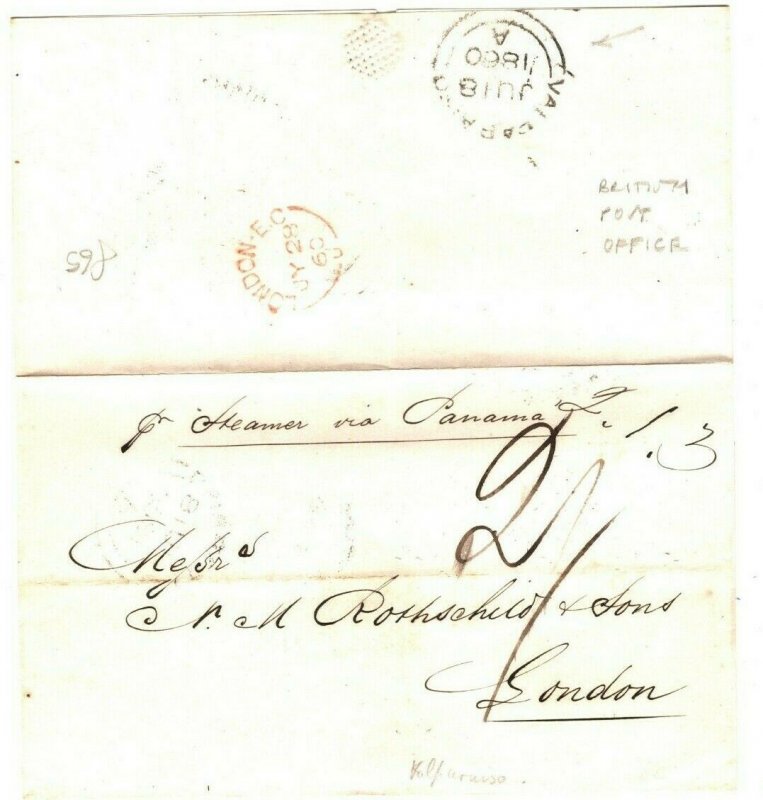 VALPARAISO
A
JU 18
1860
BRITISH
POST
OFFICE
LONDON·E.C
JY 28
60
865
pr Steamer via Panama
2.1.3
2/
Messrs
N. M Rothschild & Sons
London
Valparaiso.